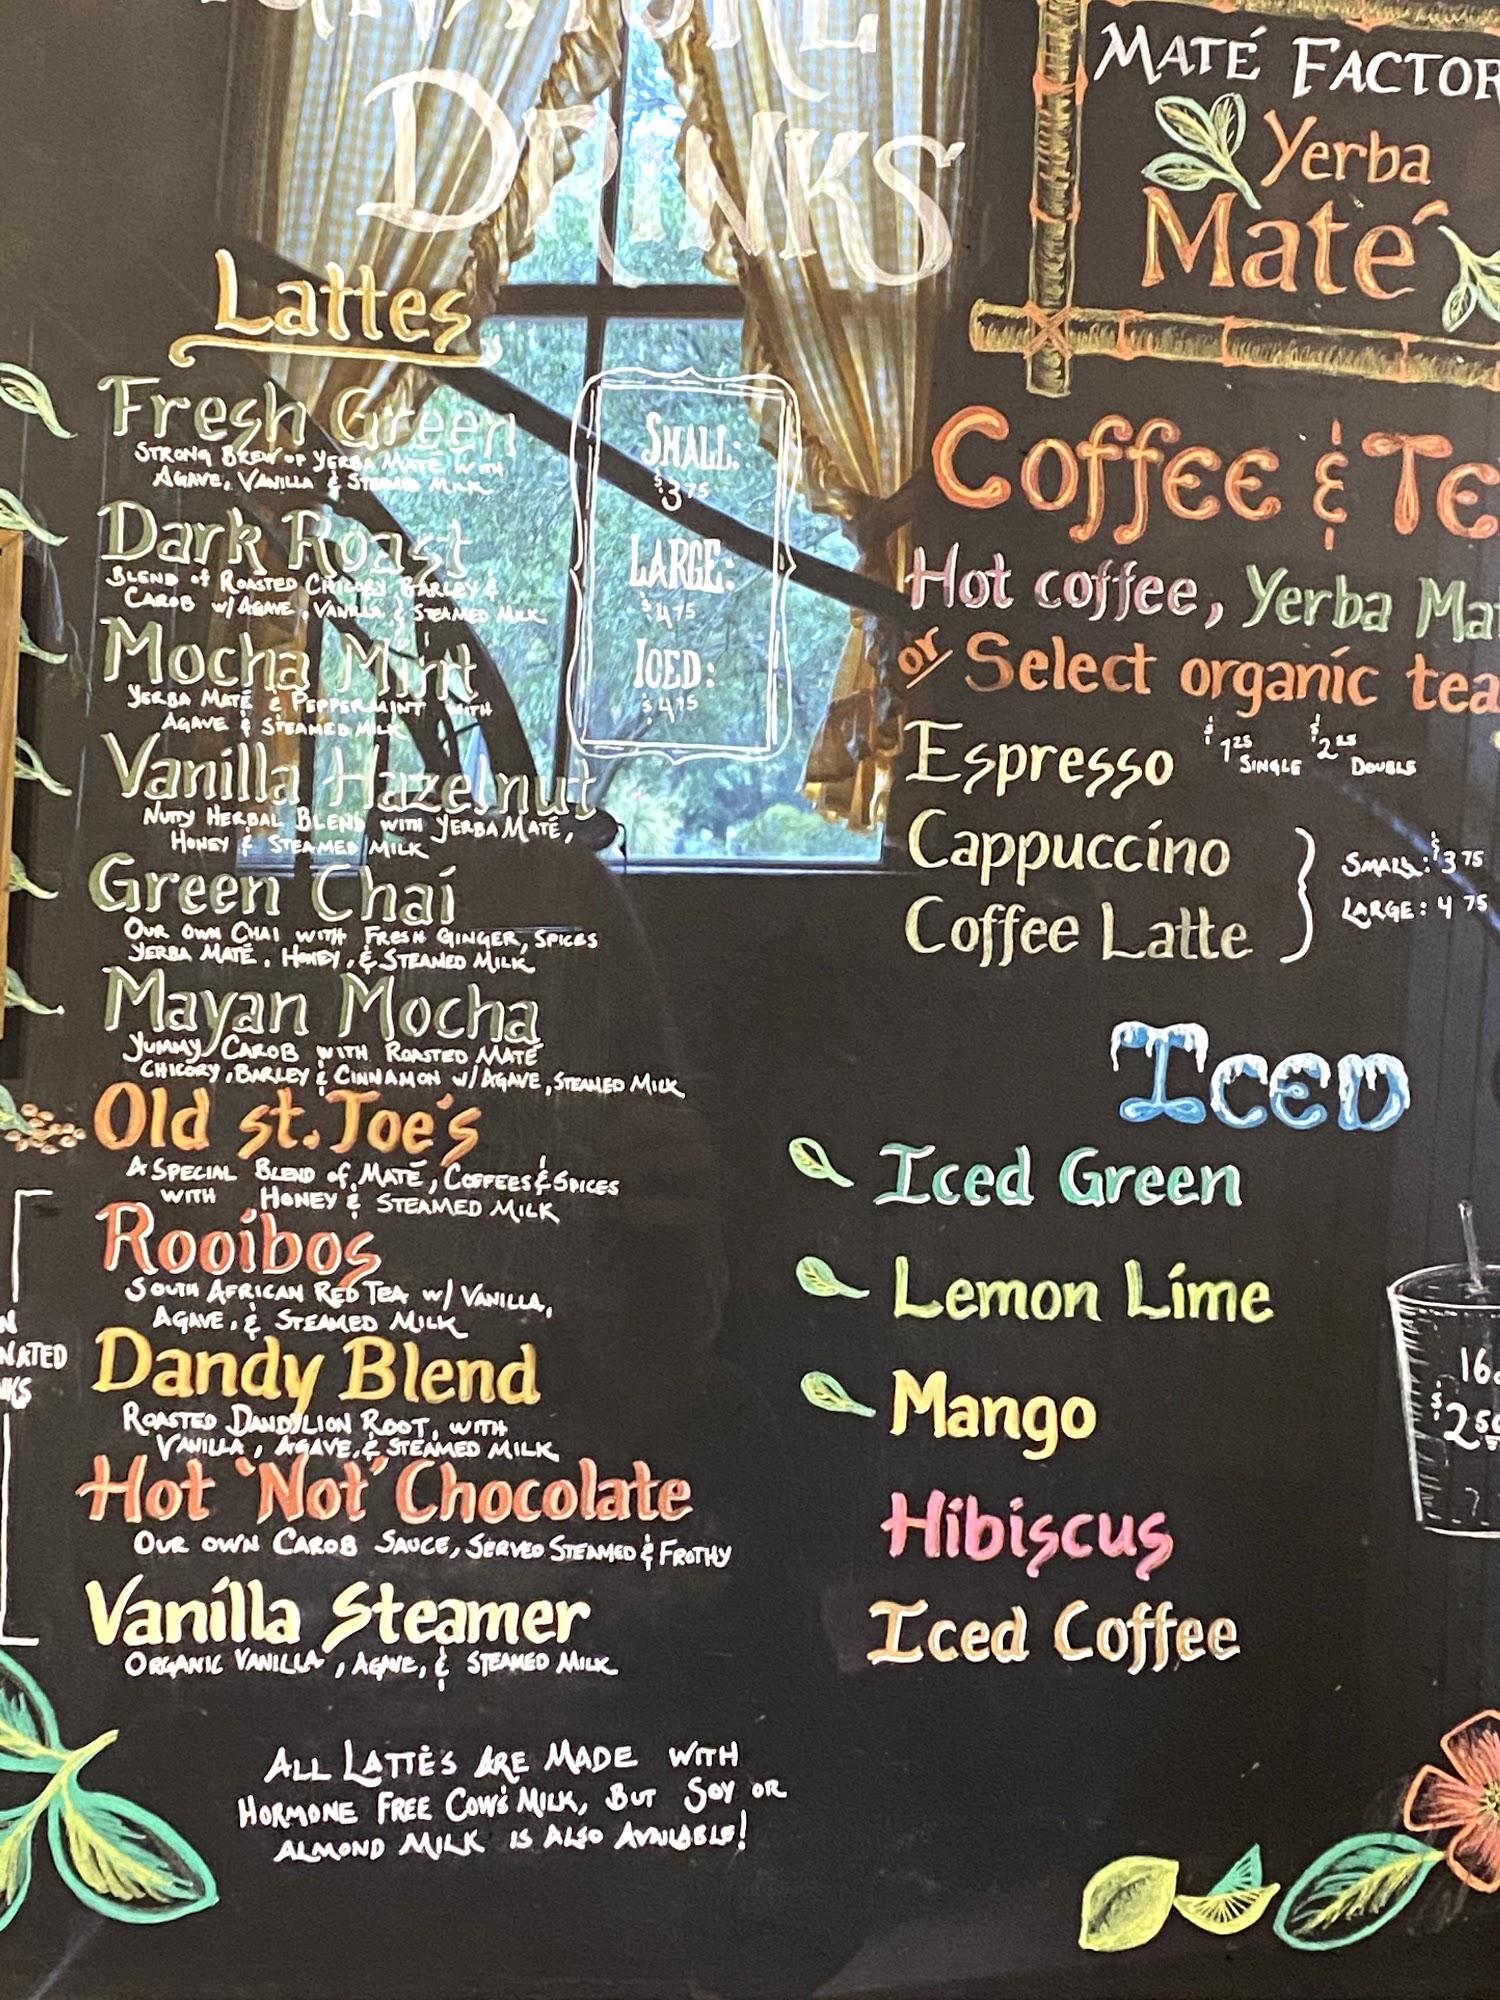 DRINKS
Lattes
Fresh Green
STRONG BREW OF YERBA MATÉ WITH
AGAVE, VANILLA & STEAMED MILK
Dark Roast
BLEND of ROASTED CHICORY BARLEY &
CAROB w/ AGAVE, VANILLA & STEAMED MILK
Mocha Mint
YERBA MATÉ & PEPPERMINT WITH
AGAVE & STEAMED MILK
Vanilla Hazelnut
NUTTY HERBAL BLEND WITH YERBA MATÉ,
HONEY & STEAMED MILK
Green Chai
OUR OWN CHAI WITH FRESH GINGER, SPICES
YERBA MATÉ, HONEY, & STEAMED MILK
Mayan Mocha
YUMMY CAROB WITH ROASTED MATÉ
CHICORY, BARLEY & CINNAMON W/ AGAVE, STEAMED MILK
Old st. Joe's
A SPECIAL BLEND of MATÉ, COFFEES & SPICES
WITH HONEY & STEAMED MILK
Rooibos
SOUTH AFRICAN RED TEA w/ VANILLA,
AGAVE, & STEAMED MILK
Dandy Blend
ROASTED DANDYLION ROOT, WITH
VANILLA, AGAVE, & STEAMED MILK
Hot 'Not' Chocolate
OUR OWN CAROB SAUCE, SERVED STEAMED & FROTHY
Vanilla Steamer
ORGANIC VANILLA, AGAVE, & STEAMED MILK
ALL LATTÉS ARE MADE WITH
HORMONE FREE COW'S MILK, BUT SOY OR
ALMOND MILK IS ALSO AVAILABLE!
SMALL:
$3.75
LARGE:
$4.75
ICED:
$4.75
MATÉ FACTOR
Yerba
Maté
Coffee & Te
Hot coffee, Yerba Ma
or Select organic tea
Espresso $1 25 SINGLE $2 25 DOUBLE
Cappuccino
Coffee Latte
SMALL: $3 75
LARGE: 4 75
ICED
Iced Green
Lemon Lime
Mango
Hibiscus
Iced Coffee
16
$2 50